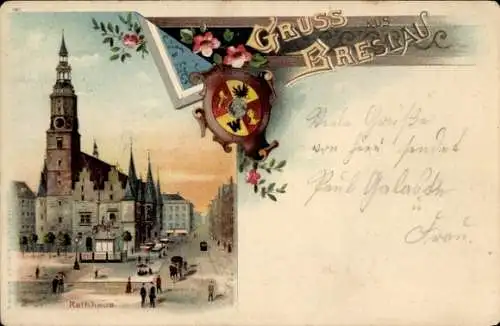 GRUSS AUS
BRESLAU
Viele Grüße
von hier sendet
Paul
u
Frau.
Rathhaus